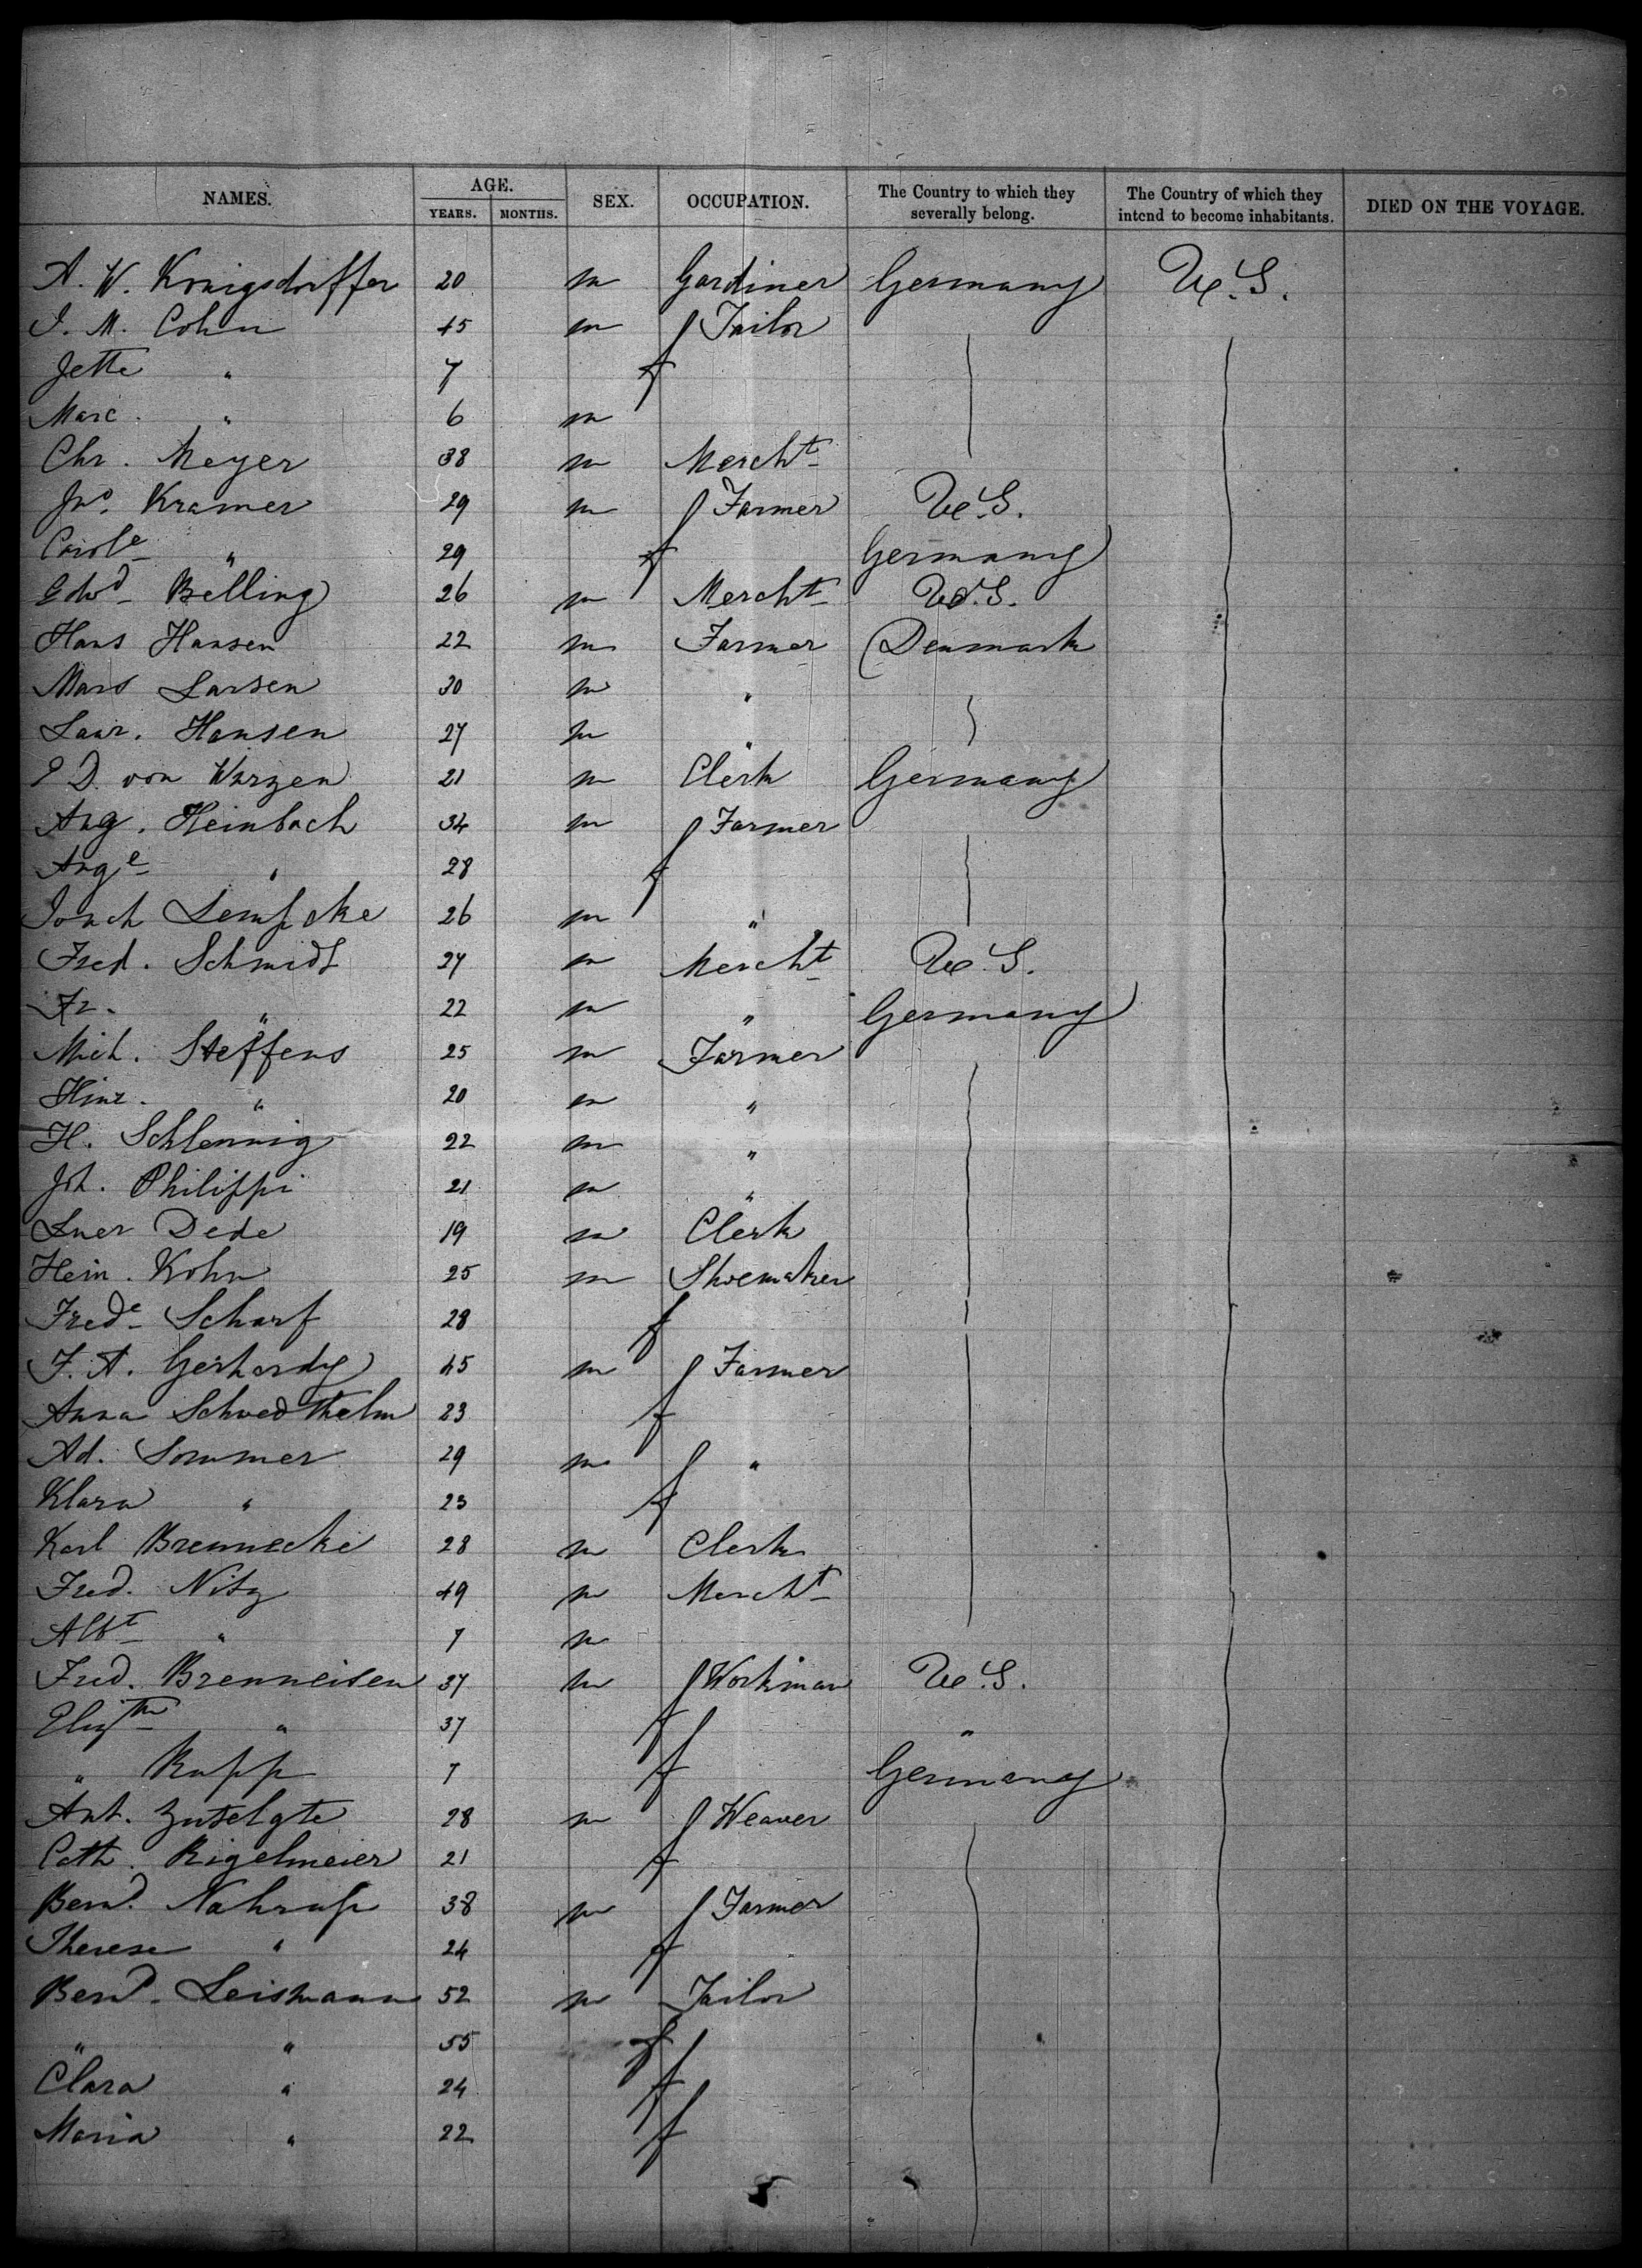 NAMES. AGE. SEX. OCCUPATION. The Country to which they severally belong. The Country of which they intend to become inhabitants. DIED ON THE VOYAGE.
YEARS. MONTHS.
A. W. Königsdorffer 20 m Gardiner Germany U.S.
I. M. Cohn 45 m Tailor
Jette " 7 f
Marc. " 6 m
Chr. Meyer 38 m Mercht
Jno. Kramer 29 m Farmer U.S.
Carole " 29 f Germany
Edwd Belling 26 m Mercht U.S.
Hans Hansen 22 m Farmer Denmark
Mars Larsen 30 m "
Laur. Hansen 27 m "
D. von Wurzen 21 m Clerk Germany
Aug. Heinbach 34 m Farmer
Auge " 28 f
Joach Lempcke 26 m "
Fred. Schmidt 27 m Mercht U.S.
Fr. " 22 m " Germany
Mich. Steffens 25 m Farmer
Hinr. " 20 m "
H. Schlennig 22 m "
Joh. Philippi 21 m "
Luer Dede 19 m Clerk
Hein. Kohn 25 m Shoemaker
Frede Scharf 28 f
F. A. Gerhardy 45 m Farmer
Anna Schwedthelm 23 f
Ad. Sommer 29 m "
Klara " 23 f
Karl Brennecke 28 m Clerk
Fred. Nitz 49 m Mercht
Albt " 7 m
Fred. Brenneisen 37 m Workman U.S.
Elizth " 37 f "
" Rupp 7 f Germany
Ant. Zutelgte 28 m Weaver
Cath. Rigelmeier 21 f
Bernd. Nahrup 38 m Farmer
Therese " 24 f
Bernd. Leismann 52 m Tailor
" " 55 f
Clara " 24 f
Maria " 22 f